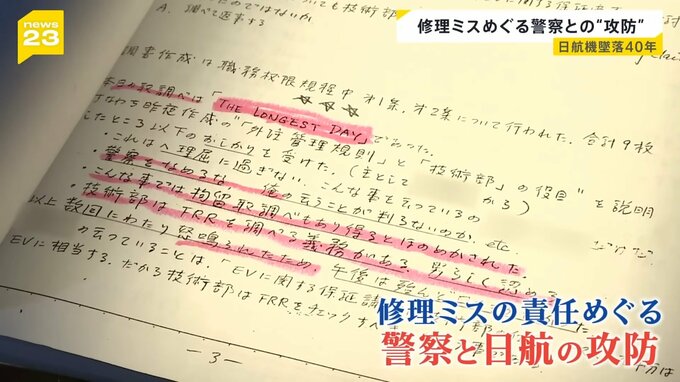 news23
修理ミスめぐる警察との“攻防”
日航機墜落40年
A. 調べて返事する
調書作成は職務権限規程中 オ1条, オ2条について行われた. 合計9枚
本日の取調べは「THE LONGEST DAY」であった.
すなわち昨夜作成の“「外注管理規則」と「技術部」の役目”を説明
したところ以下のおしかりを受けた. (主として から)
・これはヘ理屈に過ぎない. こんな事を云っているの
・警察をなめるな, 俺の云うことが判らないのか. etc.
・こんな事では拘留取調べもあり得るとほのめかされた
・技術部はFRRを調べる義務がある.
以上数回にわたり怒鳴られたため, 午後は
の云っていることは, 「EVに関する保証
EVに相当する. だから技術部はFRRをチェックす
-3-
修理ミスの責任めぐる
警察と日航の攻防